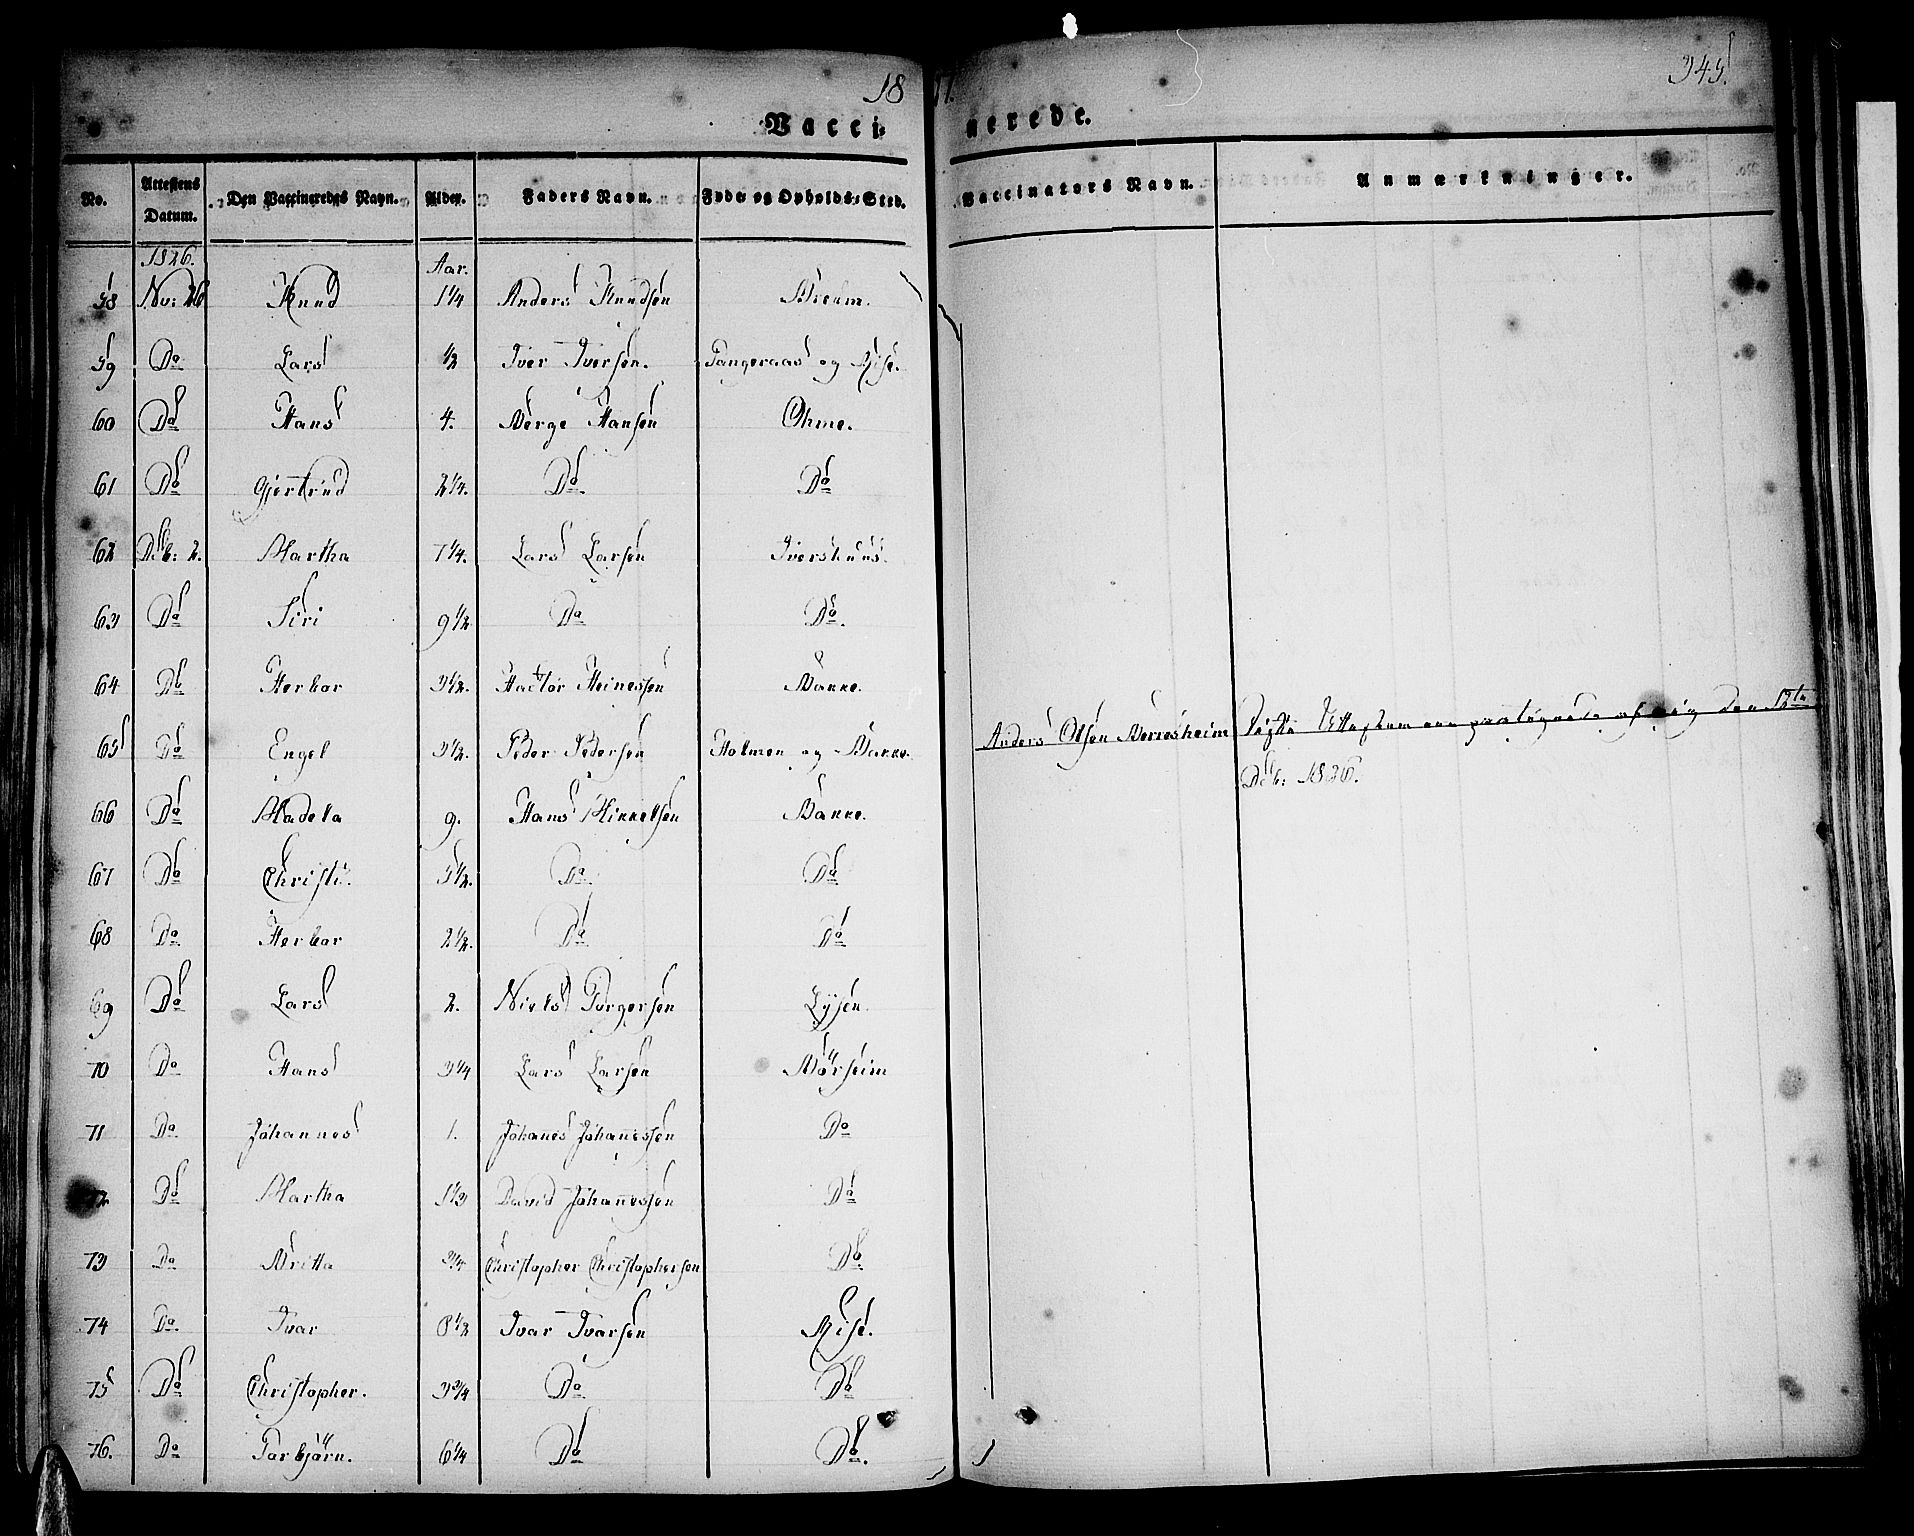 18
17.
345.
Vacci-
nerede.
No. Attestens Datum. Den Vaccineredes Navn. Alder. Faders Navn. Føde og Opholds-Sted. Vaccinators Navn. Anmærkninger.
1826. Aar.
58 Nov: 26 Knud 1 1/4 Anders Knudsen
59 Do Lars 1/2 Iver Iversen. Tangeraas og Rise.
60 Do Hans 4. Berge Hansen Ohme.
61 Do Gjertrud 2 1/4. Do Do
62 Deb: 2. Martha 7 1/4. Lars Larsen Ivershuus.
63 Do Siri 9 1/2 Do Do.
64 Do Herbor 3 1/2. Hactor Heinessen Bakke.
65 Do Engel 3 1/2. Peder Pedersen Holmen og Bakke.
Anders Olsen Berresheim den 12te
Deb: 1826.
66 Do Madela 9. Hans Mikkelsen Bakke.
67 Do Christi. 5 1/2. Do Do
68 Do Herbor 2 1/2. Do Do
69 Do Lars 2. Niels Torgersen Lysen.
70 Do Hans 3 1/4 Lars Larsen Børseim
71 Do Johannes 1. Johanes Johanessen Do
72 Do Martha 1 1/3 David Johanessen Do
73 Do Britta 3/4 Christopher Christophersen Do.
74 Do Ivar 8 1/2 Ivar Ivarsen Rise.
75 Do Christopher. 3 3/4 Do Do
76. Do Torbjørn. 6 1/4 Do Do.